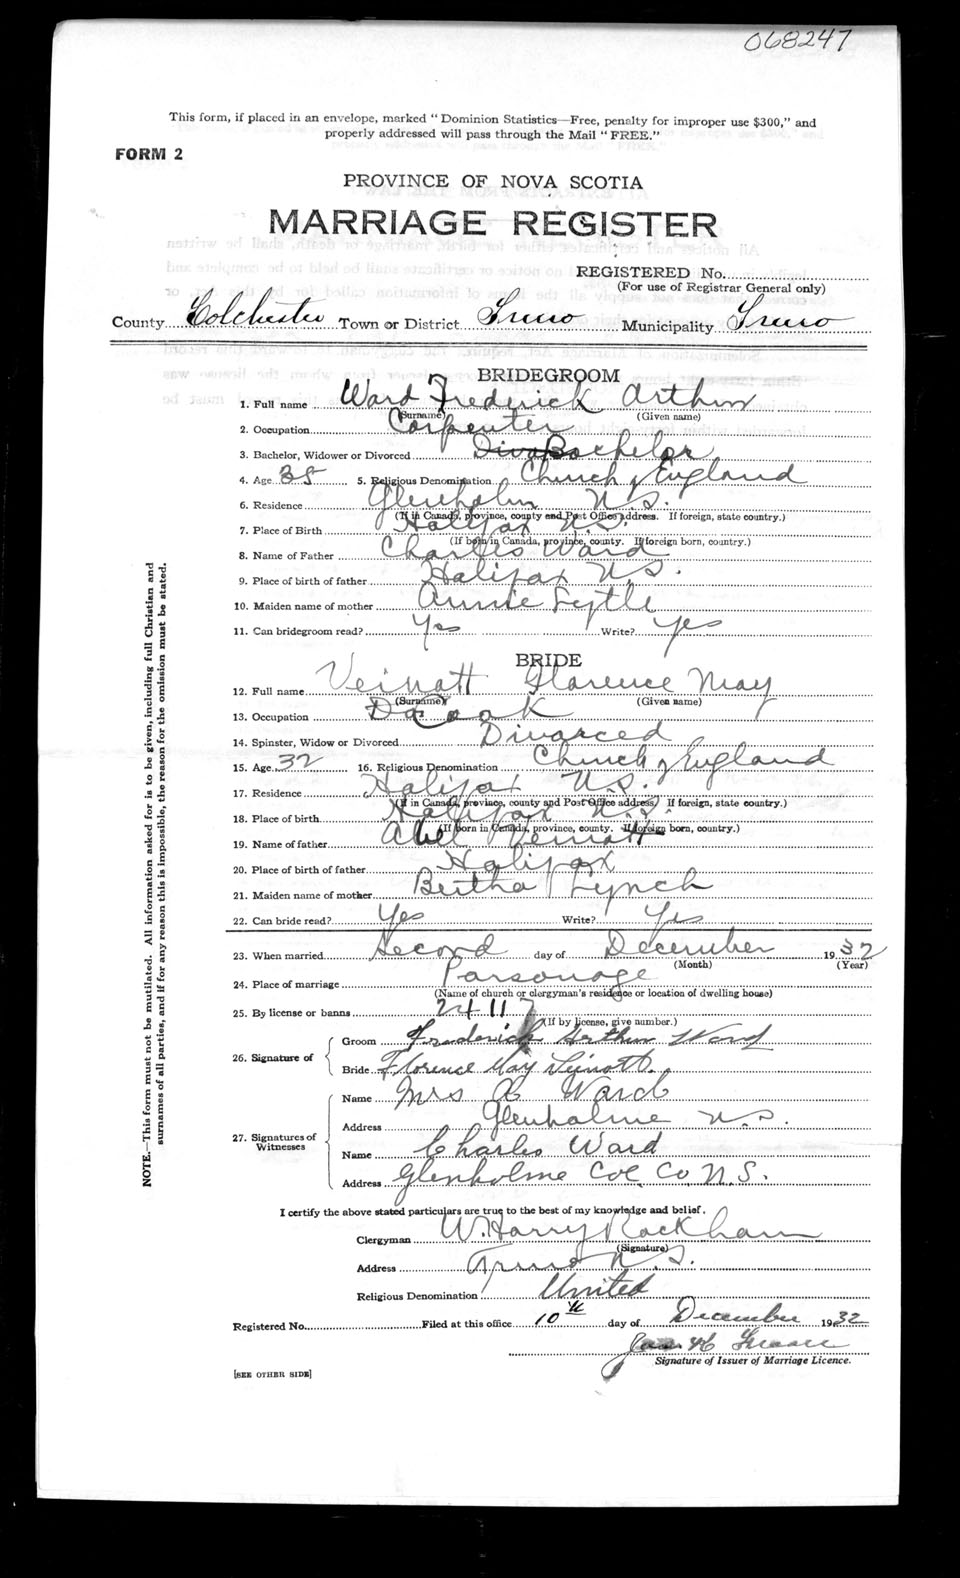 068247
This form, if placed in an envelope, marked "Dominion Statistics—Free, penalty for improper use $300," and
properly addressed will pass through the Mail "FREE."
FORM 2
PROVINCE OF NOVA SCOTIA
MARRIAGE REGISTER
REGISTERED No.
(For use of Registrar General only)
County Colchester Town or District Truro Municipality Truro
BRIDEGROOM
1. Full name Ward Frederick Arthur
(Surname) (Given name)
2. Occupation Carpenter
3. Bachelor, Widower or Divorced Bachelor
4. Age 35 5. Religious Denomination Church of England
6. Residence Glenholm N.S.
(If in Canada, province, county and Post Office address. If foreign, state country.)
7. Place of Birth Halifax N.S.
(If born in Canada, province, county. If foreign born, country.)
8. Name of Father Charles Ward
9. Place of birth of father Halifax N.S.
10. Maiden name of mother Annie Lytle
11. Can bridegroom read? Yes Write? Yes
BRIDE
12. Full name Veinott Florence May
(Surname) (Given name)
13. Occupation Cook
14. Spinster, Widow or Divorced Divorced
15. Age 32 16. Religious Denomination Church of England
17. Residence Halifax N.S.
(If in Canada, province, county and Post Office address. If foreign, state country.)
18. Place of birth Halifax N.S.
(If born in Canada, province, county. If foreign born, country.)
19. Name of father Abel Veinott
20. Place of birth of father Halifax
21. Maiden name of mother Bertha Lynch
22. Can bride read? Yes Write? Yes
23. When married Second day of December 1932
(Month) (Year)
24. Place of marriage Parsonage
(Name of church or clergyman's residence or location of dwelling house)
25. By license or banns 24117
(If by license, give number.)
26. Signature of Groom Frederick Arthur Ward
Bride Florence May Veinott
27. Signatures of Witnesses
Name Mrs A Ward
Address Glenholme N.S.
Name Charles Ward
Address Glenholme Col. Co. N.S.
I certify the above stated particulars are true to the best of my knowledge and belief.
Clergyman W. Harry Rackham
(Signature)
Address Truro N.S.
Religious Denomination United
Registered No. Filed at this office 10th day of December 1932
Signature of Issuer of Marriage Licence.
[SEE OTHER SIDE]
NOTE.—This form must not be mutilated. All information asked for is to be given, including full Christian and
surnames of all parties, and if for any reason this is impossible, the reason for the omission must be stated.